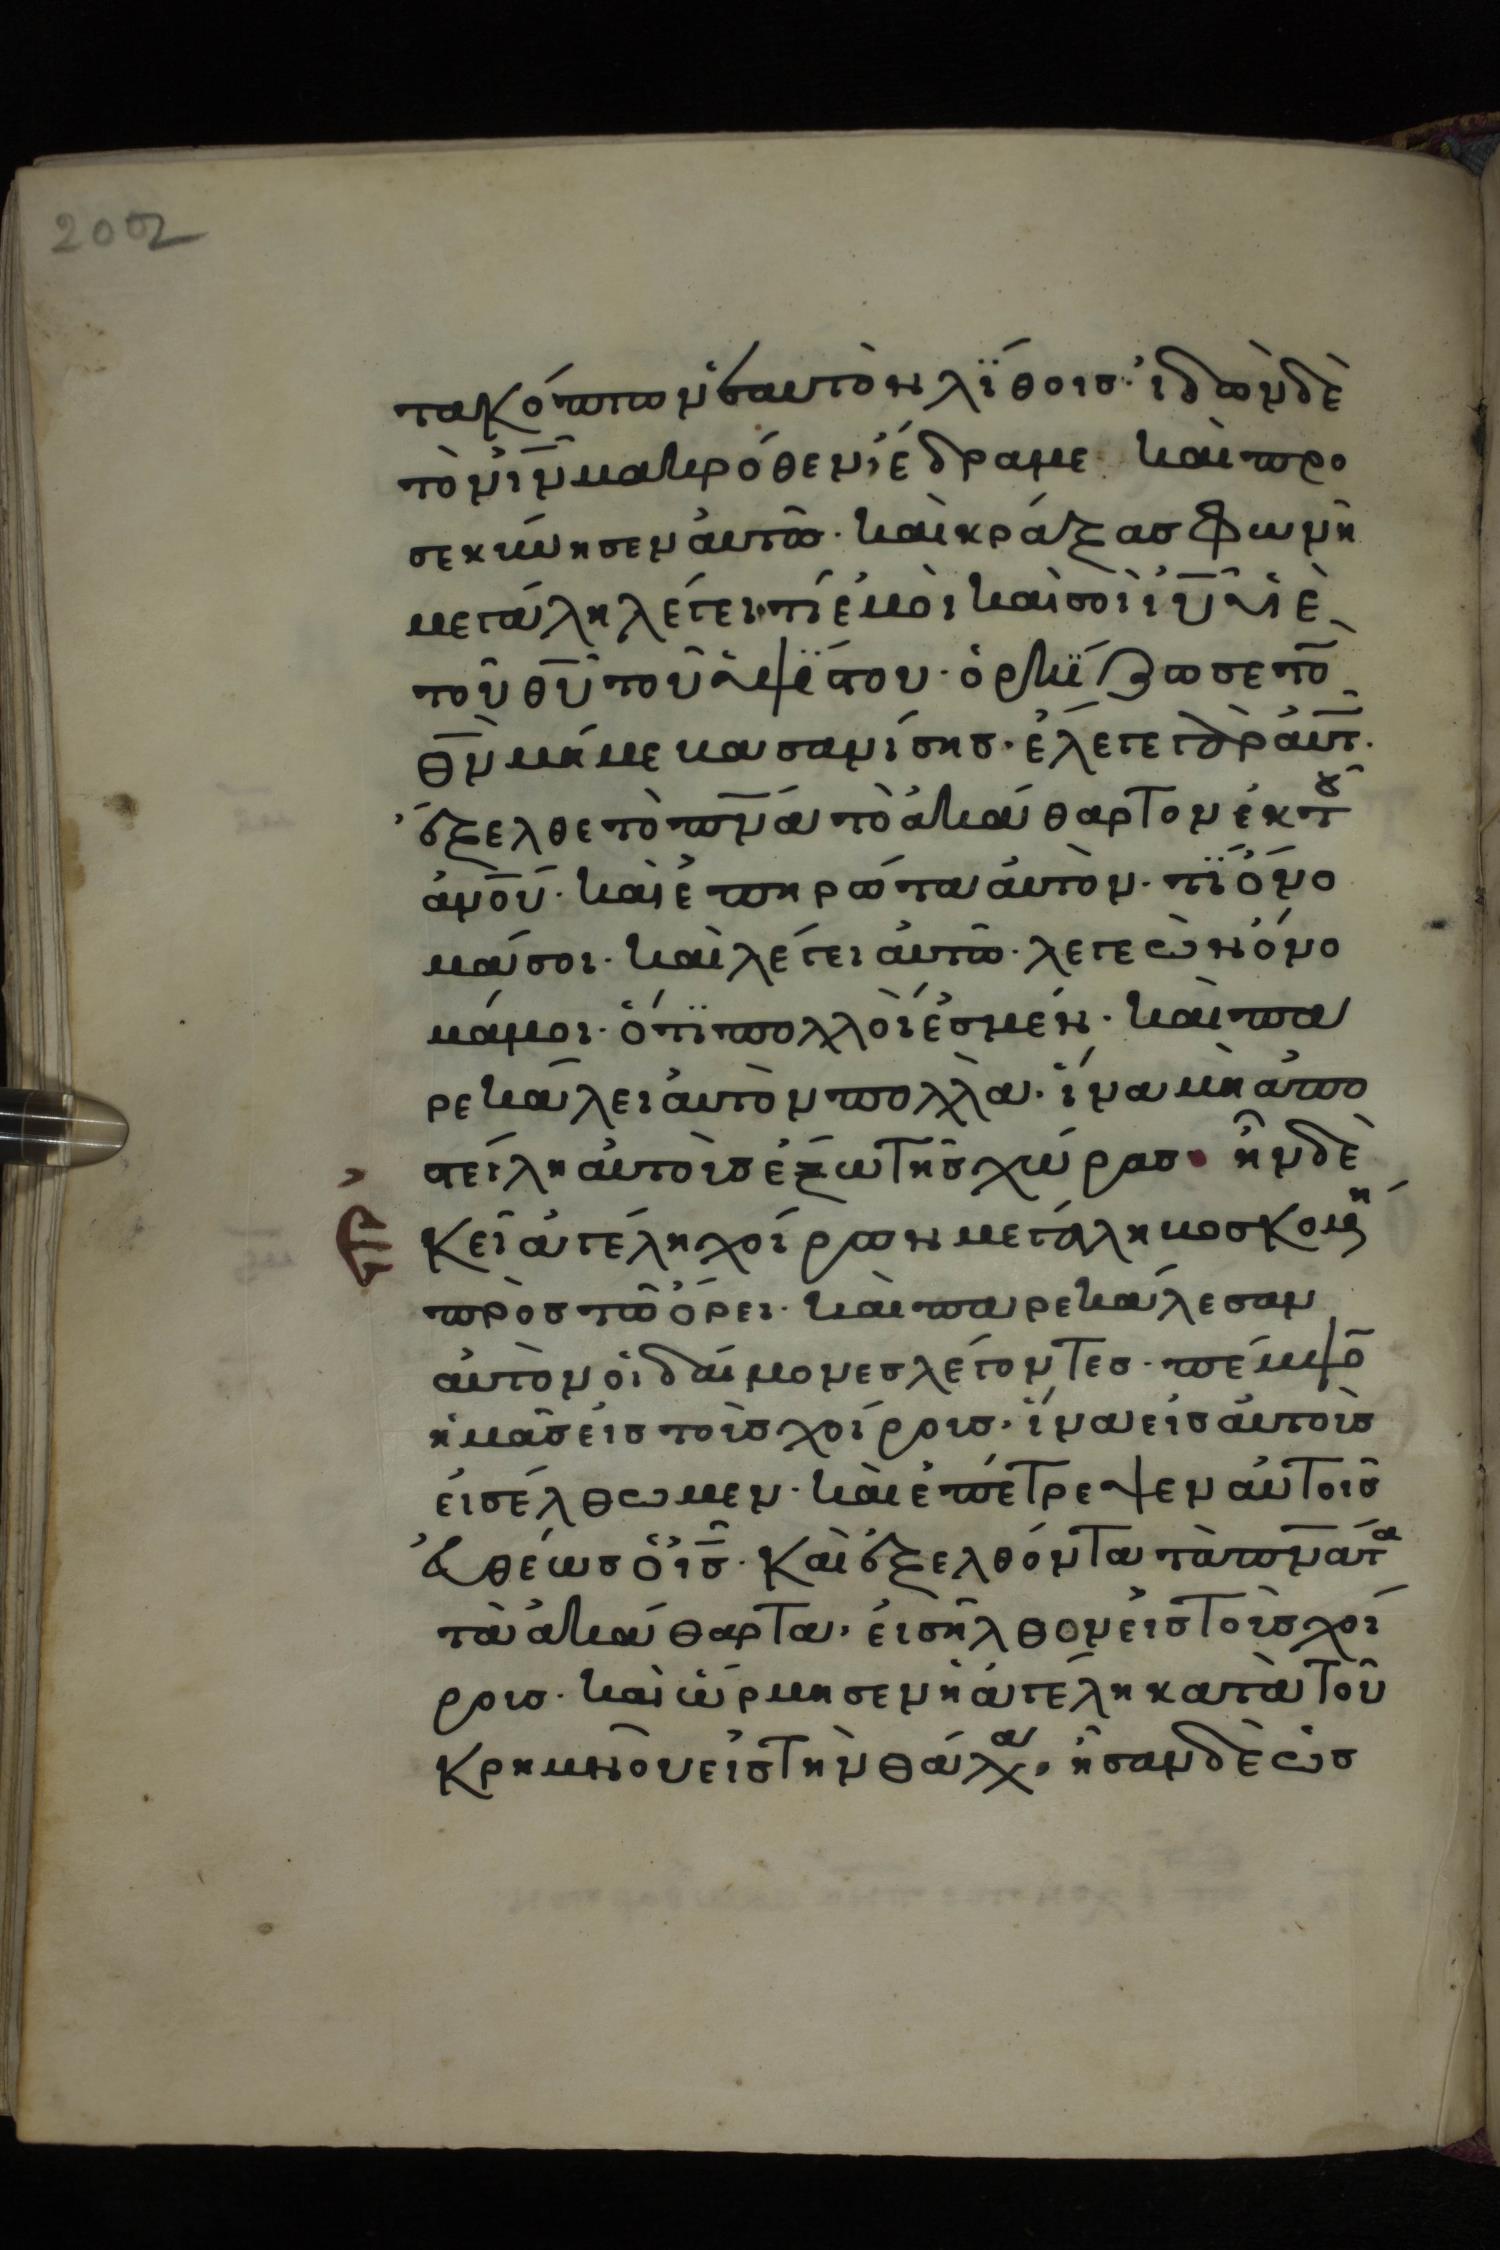 202
τακόπτων ἑαυτὸν λΐθοις· ἰδὼν δὲ
τὸν ἰν̅ μακρόθεν, ἔδραμε καὶ προ
σεκύνησεν αὐτῶ· καὶ κράξας φωνῆ
μεγάλη λέγει· τί ἐμοὶ καὶ σοὶ ἰυ̅ υἱὲ
τοῦ θυ̅ τοῦ ὑψΐστου· ὁρκΐζω σε τὸ
θν̅ μή με βασανίσης· ἔλεγε γὰρ αὐτ̅·
ἔξελθε τὸ πν̅α τὸ ἀκάθαρτον ἐκ τοῦ
ἀνο̅υ· καὶ ἐπηρώτα αὐτὸν· τΐ ὄνο
μά σοι· καὶ λέγει αὐτῶ· λεγεὼν ὄνο
μά μοι· ὅτϊ πολλοί ἐσμεν· καὶ πα
ρεκάλει αὐτὸν πολλὰ· ἵνα μὴ ἀπο
στείλη αὐτοὺς ἔξω τῆς χώρας· ἦν δὲ
ἐκεῖ ἀγέλη χοίρων μεγάλη βοσκομένη
πρὸς τῶ ὄρει· καὶ παρεκάλεσαν
αὐτὸν οἱ δαίμονες λέγοντες· πέμψο̅
ἡμᾶς εἰς τοὺς χοίρους· ἵνα εἰς αὐτοὺς
εἰσέλθωμεν· καὶ ἐπέτρεψεν αὐτοῖς
εὐθέως ὁ ις̅· καὶ ἐξελθόντα τὰ πν̅ατα
τὰ ἀκάθαρτα, εἰσῆλθον εἰς τοὺς χοί
ρους· καὶ ὥρμησεν ἡ ἀγέλη κατὰ τοῦ
κρημνοῦ εἰς τὴν θάλασ, ἦσαν δὲ ὡς